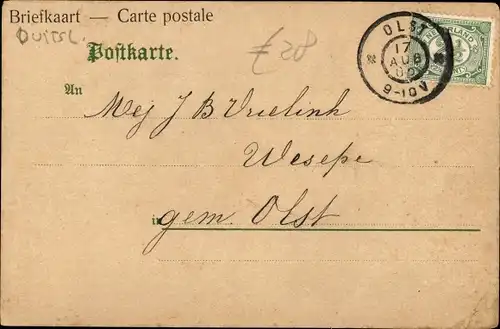 Briefkaart — Carte postale
Duitsl.
Postkarte.
£28
OLST
17
AUG
9-10V
NEDERLAND
An
Mej J B Vrielink
Wesepe
in gem. Olst